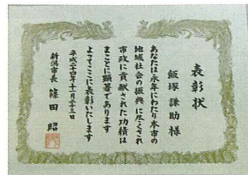 表彰状
飯塚謙助様
あなたは永年にわたり本市の
地域社会の振興に尽くされ
市政に貢献された功績は
まことに顕著であります
よってここに表彰いたします
平成二十四年十一月二十三日
新潟市長 篠田昭